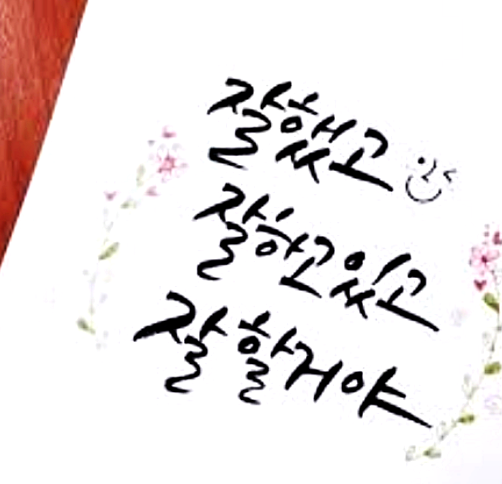 잘했고
잘하고있고
잘할거야